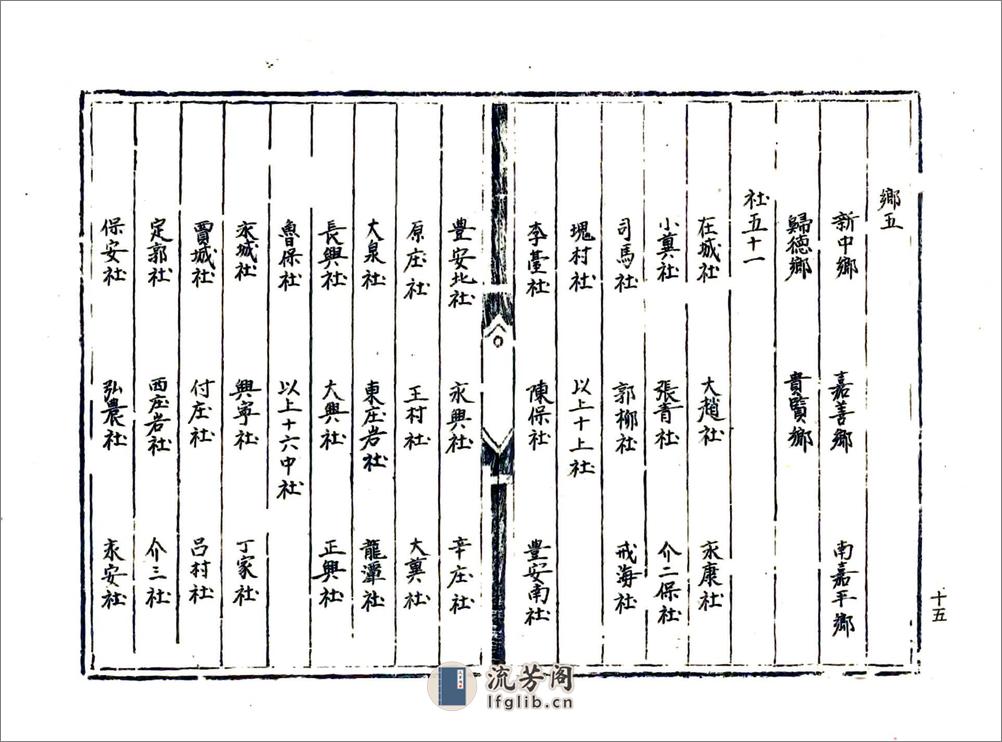 鄉五
新中鄉 嘉善鄉 南嘉平鄉
歸德鄉 貴賢鄉
社五十一
在城社 大趙社 永康社
小冀社 張青社 介二保社
司馬社 郭柳社 戒海社
塊村社 以上十上社
李臺社 陳保社 豊安南社
豊安北社 永興社 辛庄社
原庄社 王村社 大冀社
大泉社 東庄岩社 龍潭社
長興社 大興社 正興社
魯保社 以上十六中社
永城社 興寧社 丁家社
賈城社 付庄社 呂村社
定郭社 西庄岩社 介三社
保安社 弘農社 永安社
十五
流芳阁
lfglib.cn